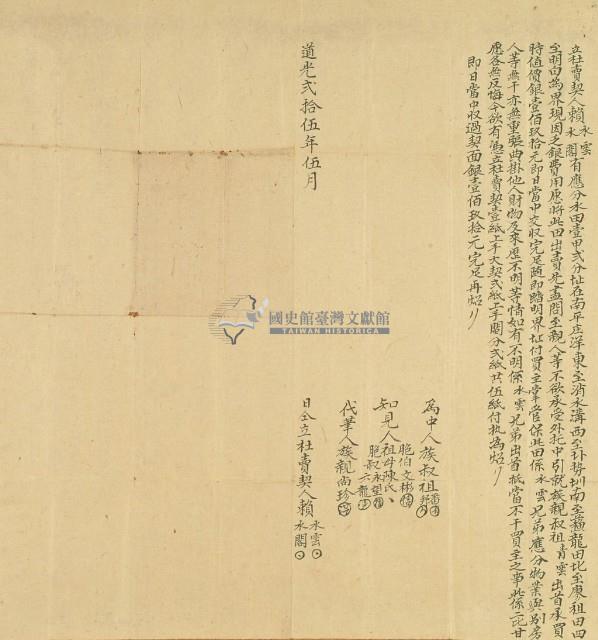 立杜賣契人賴水雲水閣有應分水田壹甲弍分址在南平庄洋東至消水溝西至圳南至龍田北至廖租田四
至明白為界現因乏銀費用愿將此田出賣先盡問至親人等不欲承受外托中引就族親叔祖青雲出首承買
時值價銀壹佰玖拾元即日當中交收完足隨即踏明界址付買主掌管保此田係水雲兄弟應分物業與別房
人等無干亦無重張典掛他人財物及來歷不明等情如有不明係水雲兄弟出首抵當不干買主之事此係二比甘
愿各無反悔今欲有憑立杜賣契壹紙上手大契弍紙上手鬮分弍紙共伍紙付执為炤
即日當中收過契面銀壹佰玖拾元完足再炤
道光弍拾伍年伍月
為中人族叔祖
胞伯文彬
知見人祖母陳氏
胞叔永望
六龍
代筆人族親尚珍
日仝立杜賣契人賴水雲水閣
國史館臺灣文獻館
TAIWAN HISTORICA